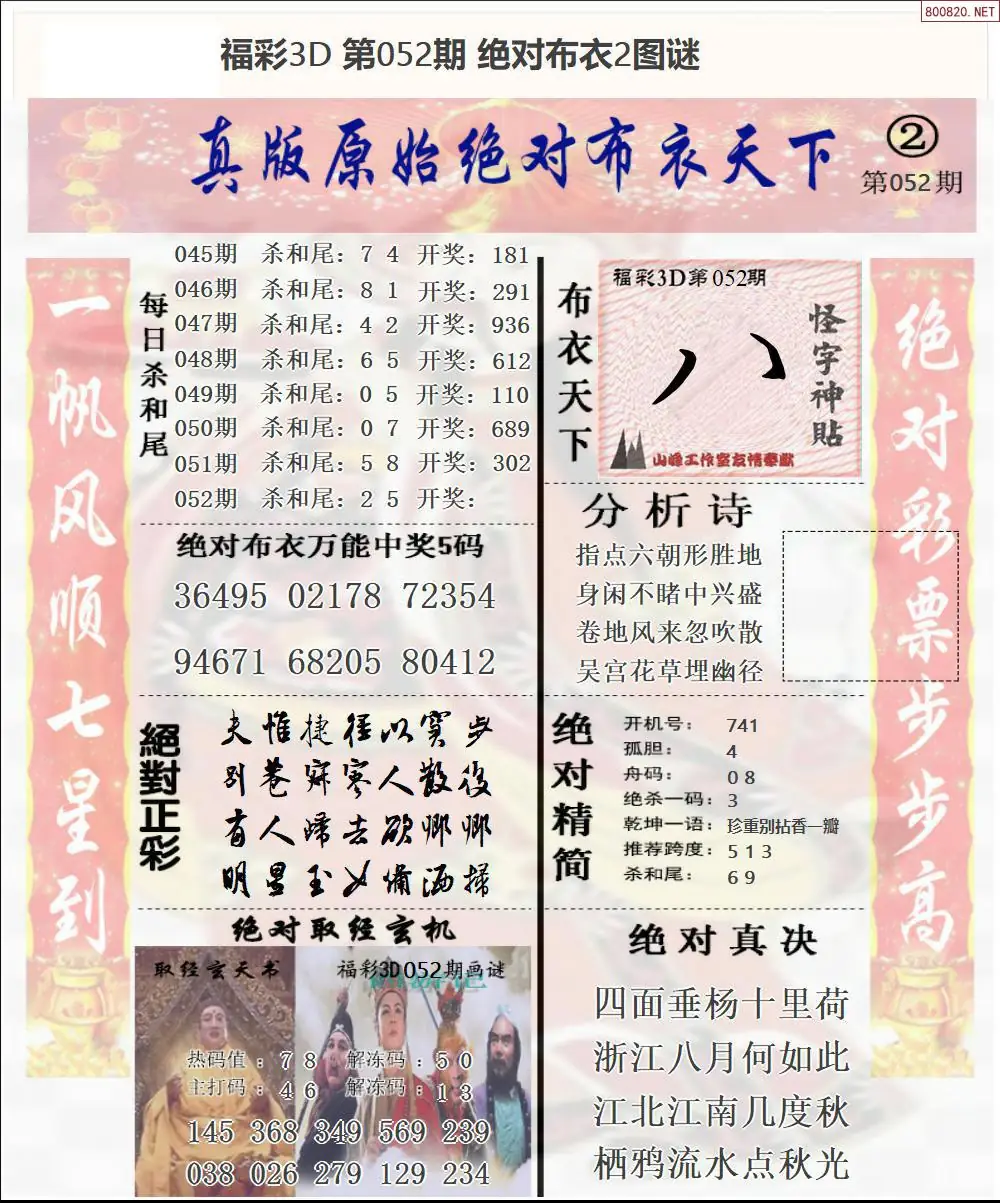 800820.NET
福彩3D 第052期 绝对布衣2图谜
真版原始绝对布衣天下
②
第052期
一帆风顺七星到
每日杀和尾
045期 杀和尾：7 4 开奖：181
046期 杀和尾：8 1 开奖：291
047期 杀和尾：4 2 开奖：936
048期 杀和尾：6 5 开奖：612
049期 杀和尾：0 5 开奖：110
050期 杀和尾：0 7 开奖：689
051期 杀和尾：5 8 开奖：302
052期 杀和尾：2 5 开奖：
绝对布衣万能中奖5码
36495 02178 72354
94671 68205 80412
絕對正彩
夫惟捷径以窘步
别巷寂寥人散後
有人归去欲卿卿
明星玉女备洒扫
绝对取经玄机
取经玄天书
福彩3D052期画谜
热码值：7 8 解冻码：5 0
主打码：4 6 解冻码：1 3
145 368 349 569 239
038 026 279 129 234
布衣天下
福彩3D第052期
八
怪字神贴
山峰工作室友情奉献
分析诗
指点六朝形胜地
身闲不睹中兴盛
卷地风来忽吹散
吴宫花草埋幽径
绝对精简
开机号：741
孤胆：4
舟码：0 8
绝杀一码：3
乾坤一语：珍重别拈香一瓣
推荐跨度：5 1 3
杀和尾：6 9
绝对真决
四面垂杨十里荷
浙江八月何如此
江北江南几度秋
栖鸦流水点秋光
绝对彩票步步高